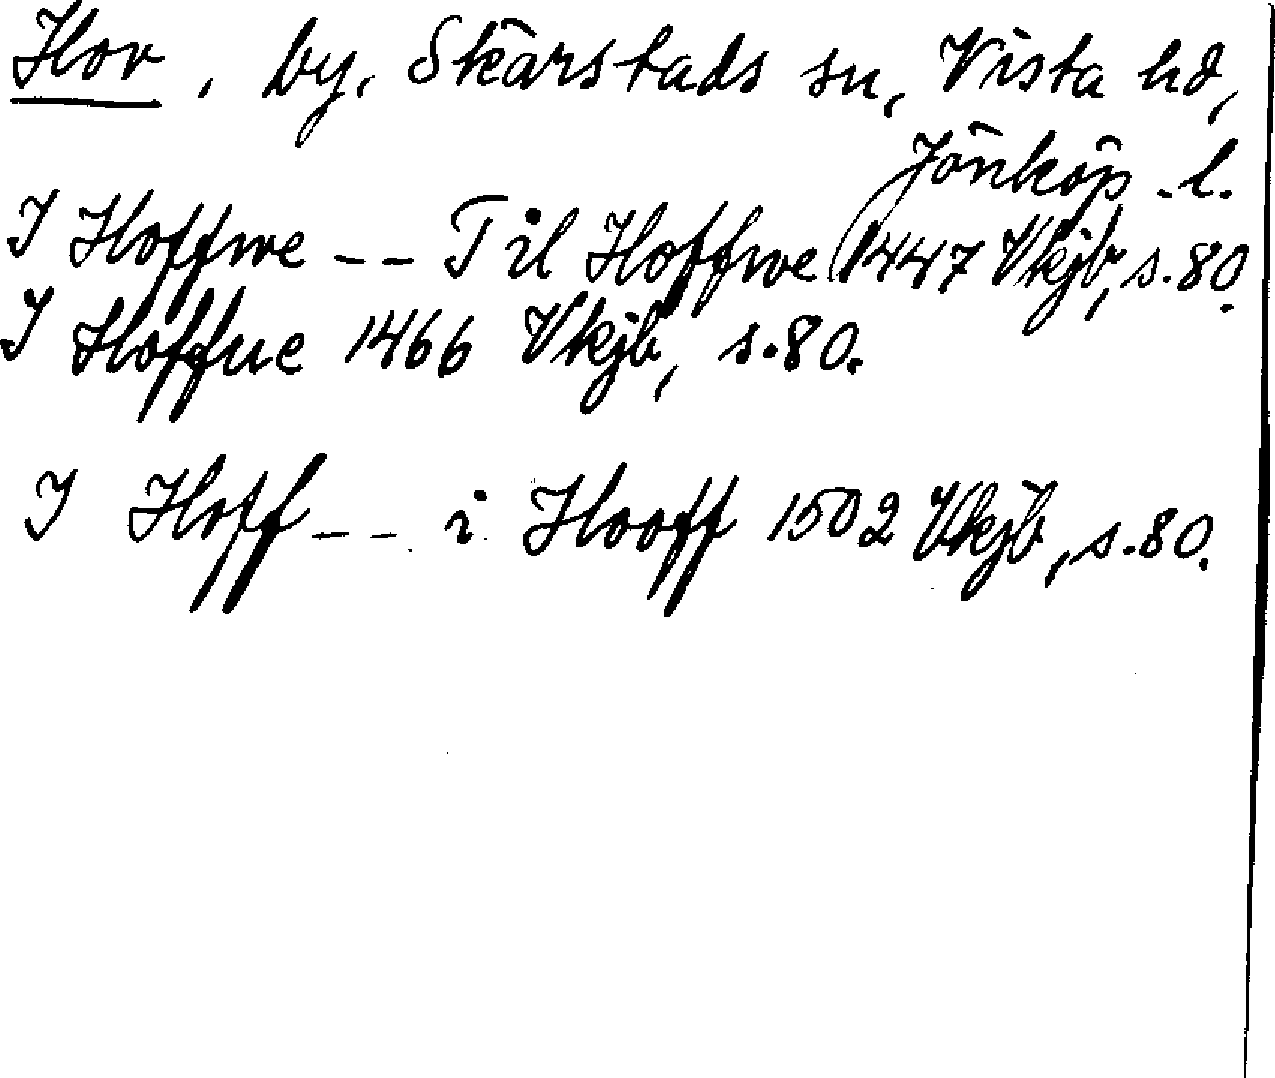 Hov, by, Skärstads sn, Vista hd,
Jönköp. l.
I Hoffwe -- Til Hoffwe 1447 Vkjb, s. 80.
I Hoffue 1466 Vkjb, s. 80.
I Hoff -- i Hooff 1502 Vkjb, s. 80.